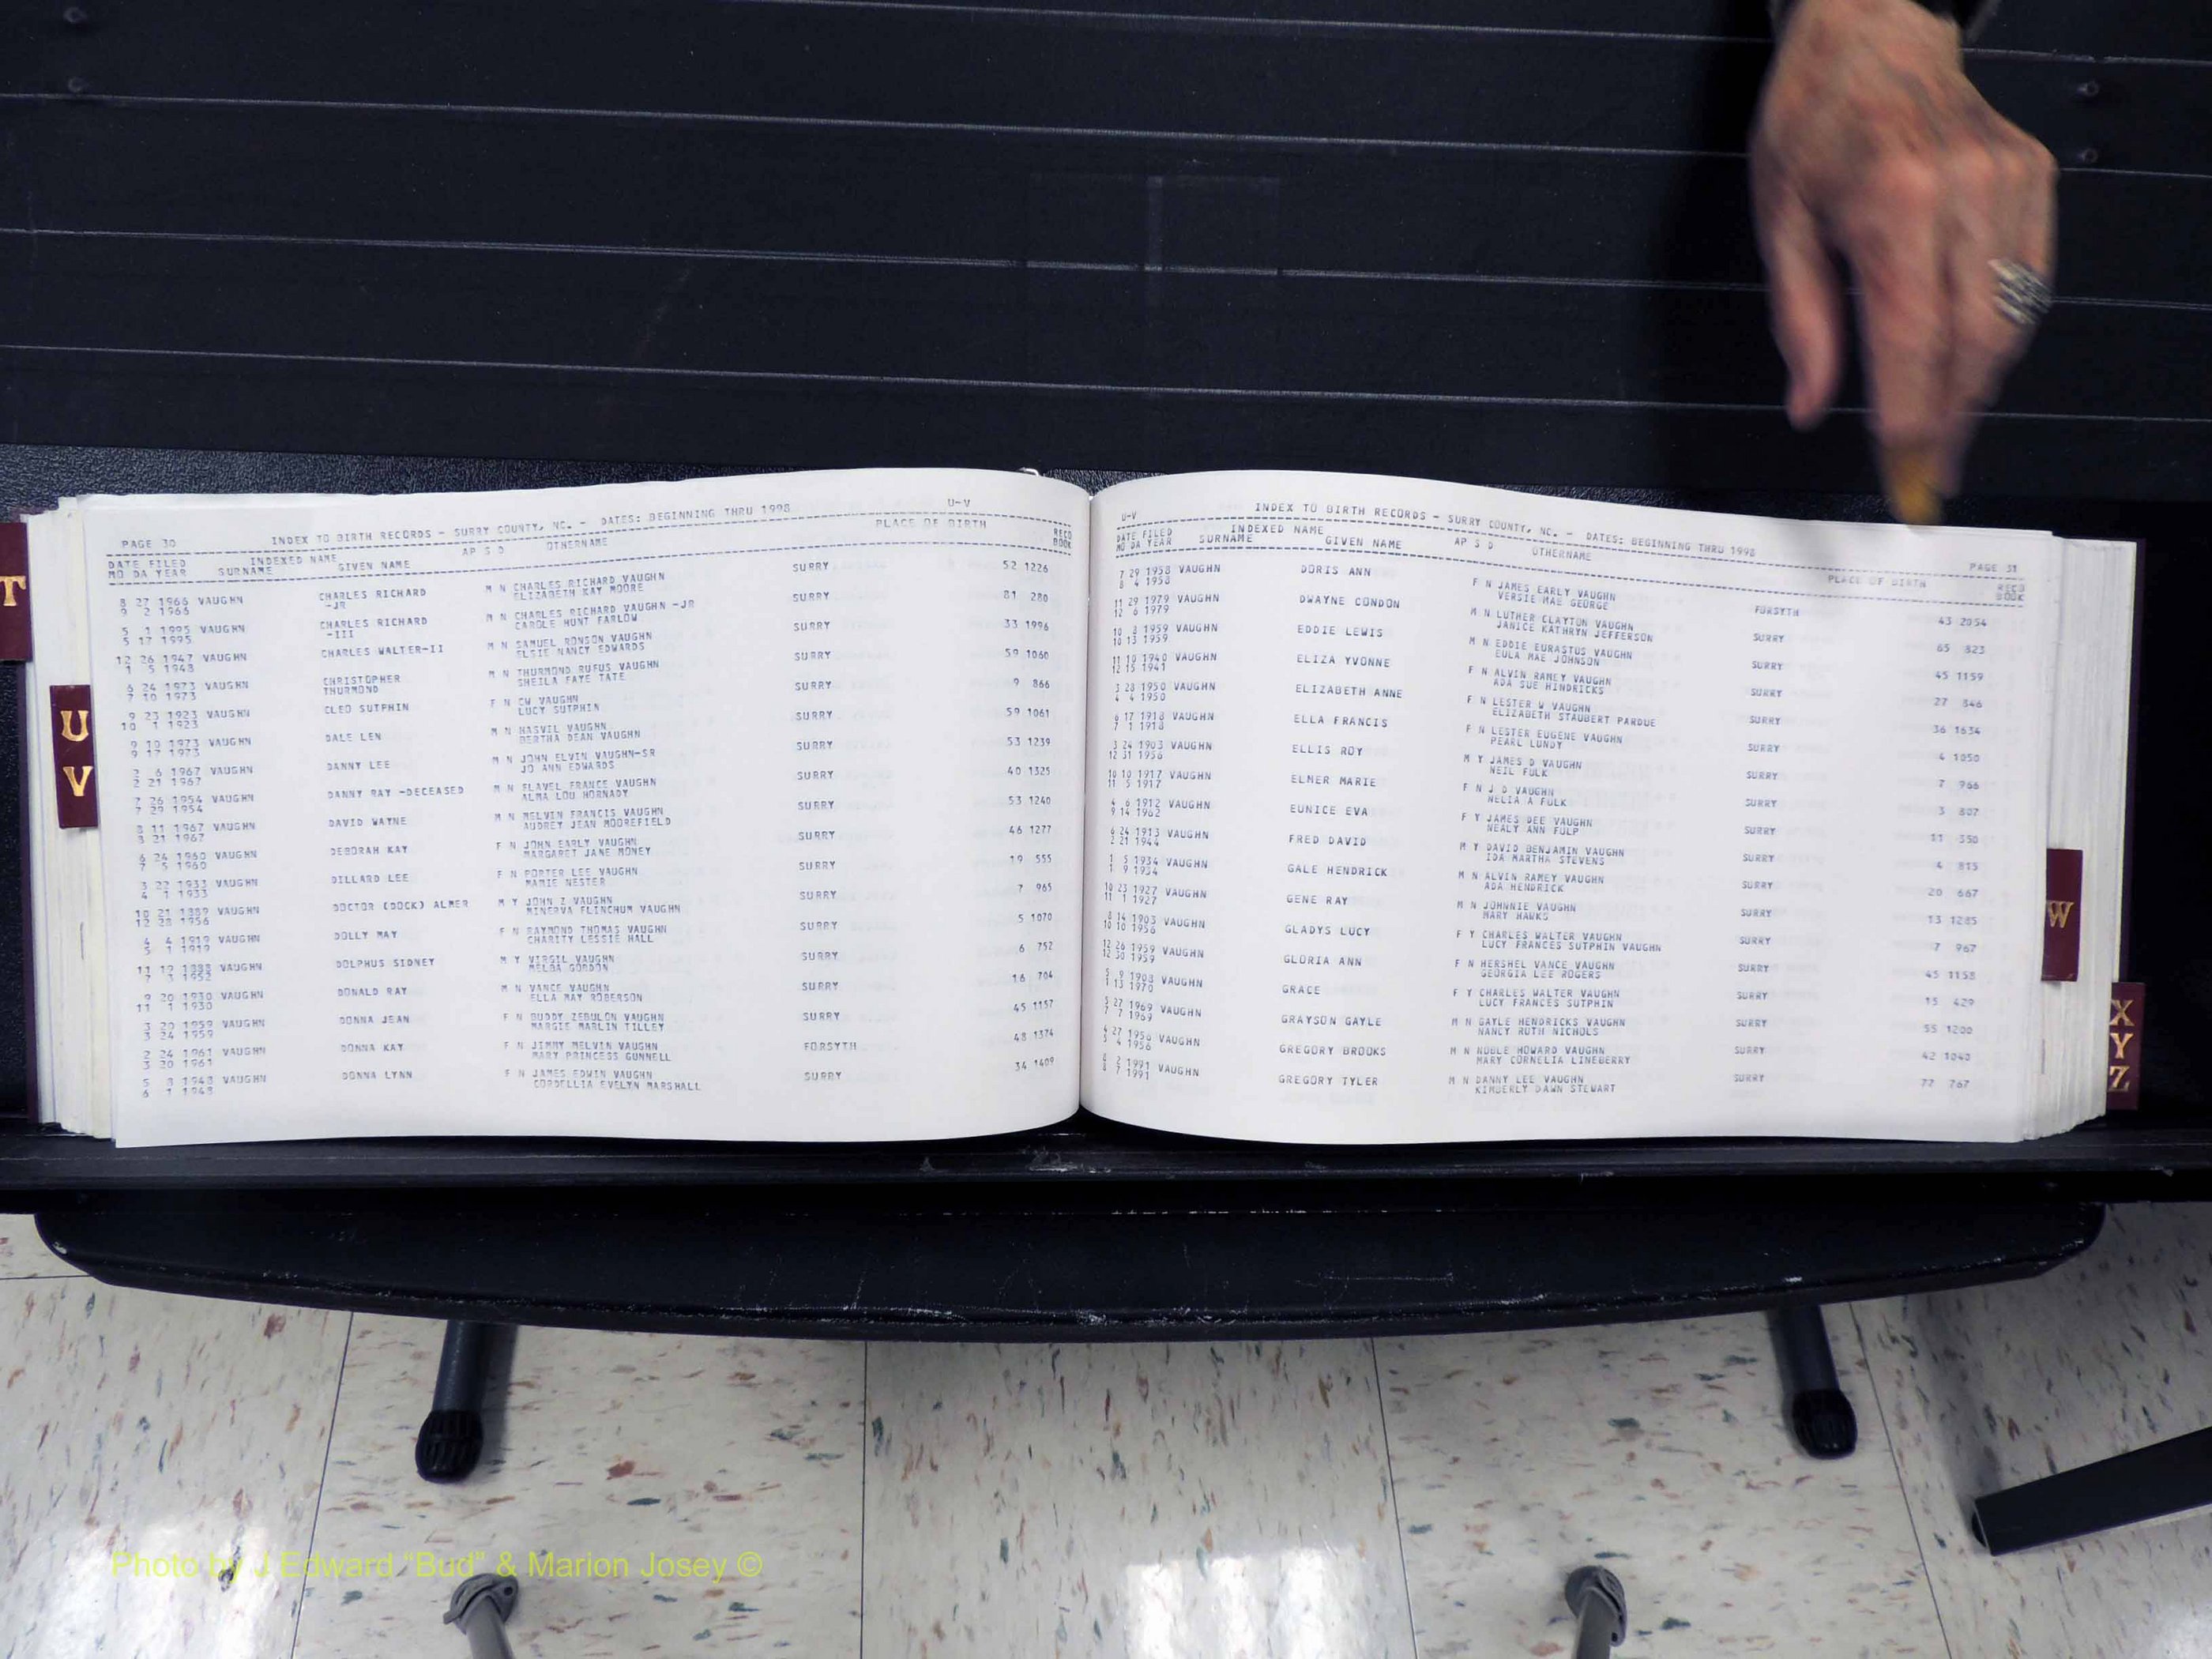 PAGE 30 INDEX TO BIRTH RECORDS - SURRY COUNTY, NC. - DATES: BEGINNING THRU 1998 U-V
DATE FILED INDEXED NAME PLACE OF BIRTH RECD
MO DA YEAR SURNAME GIVEN NAME AP S D OTHERNAME BOOK
8 27 1966 VAUGHN CHARLES RICHARD M N CHARLES RICHARD VAUGHN SURRY 52 1226
9 2 1966 -JR ELIZABETH KAY MOORE
5 1 1995 VAUGHN CHARLES RICHARD M N CHARLES RICHARD VAUGHN -JR SURRY 81 280
5 17 1995 -III CAROLE HUNT FARLOW
12 26 1947 VAUGHN CHARLES WALTER-II M N SAMUEL RONSON VAUGHN SURRY 33 1996
1 5 1948 ELSIE NANCY EDWARDS
6 24 1973 VAUGHN CHRISTOPHER M N THURMOND RUFUS VAUGHN SURRY 59 1060
7 10 1973 THURMOND SHEILA FAYE TATE
9 23 1923 VAUGHN CLEO SUTPHIN F N CW VAUGHN SURRY 9 866
10 1 1923 LUCY SUTPHIN
9 10 1973 VAUGHN DALE LEN M N HASVIL VAUGHN SURRY 59 1061
9 17 1973 BERTHA DEAN VAUGHN
2 6 1967 VAUGHN DANNY LEE M N JOHN ELVIN VAUGHN-SR SURRY 53 1239
2 21 1967 JO ANN EDWARDS
7 26 1954 VAUGHN DANNY RAY -DECEASED M N FLAVEL FRANCE VAUGHN SURRY 40 1325
7 29 1954 ALMA LOU HORNADY
8 11 1967 VAUGHN DAVID WAYNE M N MELVIN FRANCIS VAUGHN SURRY 53 1240
8 21 1967 AUDREY JEAN MOOREFIELD
6 24 1960 VAUGHN DEBORAH KAY F N JOHN EARLY VAUGHN SURRY 46 1277
7 5 1960 MARGARET JANE MONEY
3 22 1933 VAUGHN DILLARD LEE F N PORTER LEE VAUGHN SURRY 19 555
4 1 1933 MAMIE NESTER
10 21 1889 VAUGHN DOCTOR (DOCK) ALMER M Y JOHN Z VAUGHN SURRY 7 965
12 28 1956 MINERVA FLINCHUM VAUGHN
4 4 1919 VAUGHN DOLLY MAY F N RAYMOND THOMAS VAUGHN SURRY 5 1070
5 1 1919 CHARITY LESSIE HALL
11 19 1888 VAUGHN DOLPHUS SIDNEY M Y VIRGIL VAUGHN SURRY 6 752
7 3 1952 MELBA GORDON
9 20 1930 VAUGHN DONALD RAY M N VANCE VAUGHN SURRY 16 704
11 1 1930 ELLA MAY ROBERSON
3 20 1959 VAUGHN DONNA JEAN F N BUDDY ZEBULON VAUGHN SURRY 45 1157
3 24 1959 MARGIE MARLIN TILLEY
2 24 1961 VAUGHN DONNA KAY F N JIMMY MELVIN VAUGHN FORSYTH 48 1374
3 20 1961 MARY PRINCESS GUNNELL
5 8 1948 VAUGHN DONNA LYNN F N JAMES EDWIN VAUGHN SURRY 34 1409
6 1 1948 CORDELLIA EVELYN MARSHALL
U-V INDEX TO BIRTH RECORDS - SURRY COUNTY, NC. - DATES: BEGINNING THRU 1998 PAGE 31
DATE FILED INDEXED NAME PLACE OF BIRTH RECD
MO DA YEAR SURNAME GIVEN NAME AP S D OTHERNAME BOOK
7 29 1958 VAUGHN DORIS ANN F N JAMES EARLY VAUGHN FORSYTH 43 2054
8 4 1958 VERSIE MAE GEORGE
11 29 1979 VAUGHN DWAYNE CONDON M N LUTHER CLAYTON VAUGHN SURRY 65 823
12 6 1979 JANICE KATHRYN JEFFERSON
10 3 1959 VAUGHN EDDIE LEWIS M N EDDIE EURASTUS VAUGHN SURRY 45 1159
10 13 1959 EULA MAE JOHNSON
11 10 1940 VAUGHN ELIZA YVONNE F N ALVIN RAMEY VAUGHN SURRY 27 346
12 15 1941 ADA SUE HINDRICKS
3 28 1950 VAUGHN ELIZABETH ANNE F N LESTER W VAUGHN SURRY 36 1634
4 4 1950 ELIZABETH STAUBERT PARDUE
6 17 1918 VAUGHN ELLA FRANCIS F N LESTER EUGENE VAUGHN SURRY 4 1050
7 1 1918 PEARL LUNDY
3 24 1903 VAUGHN ELLIS ROY M Y JAMES D VAUGHN SURRY 7 966
12 31 1956 NEIL FULK
10 10 1917 VAUGHN ELMER MARIE F N J D VAUGHN SURRY 3 807
11 5 1917 NELIA A FULK
4 6 1912 VAUGHN EUNICE EVA F Y JAMES DEE VAUGHN SURRY 11 350
9 14 1962 NEALY ANN FULP
6 24 1913 VAUGHN FRED DAVID M Y DAVID BENJAMIN VAUGHN SURRY 4 815
2 21 1944 IDA MARTHA STEVENS
1 5 1934 VAUGHN GALE HENDRICK M N ALVIN RAMEY VAUGHN SURRY 20 667
1 9 1934 ADA HENDRICK
10 23 1927 VAUGHN GENE RAY M N JOHNNIE VAUGHN SURRY 13 1285
11 1 1927 MARY HAWKS
8 14 1903 VAUGHN GLADYS LUCY F Y CHARLES WALTER VAUGHN SURRY 7 967
10 10 1956 LUCY FRANCES SUTPHIN VAUGHN
12 26 1959 VAUGHN GLORIA ANN F N HERSHEL VANCE VAUGHN SURRY 45 1158
12 30 1959 GEORGIA LEE ROGERS
5 9 1908 VAUGHN GRACE F Y CHARLES WALTER VAUGHN SURRY 15 429
1 13 1970 LUCY FRANCES SUTPHIN
5 27 1969 VAUGHN GRAYSON GAYLE M N GAYLE HENDRICKS VAUGHN SURRY 55 1200
7 7 1969 NANCY RUTH NICHOLS
4 27 1956 VAUGHN GREGORY BROOKS M N NOBLE HOWARD VAUGHN SURRY 42 1040
5 4 1956 MARY CORNELIA LINEBERRY
8 2 1991 VAUGHN GREGORY TYLER M N DANNY LEE VAUGHN SURRY 77 767
8 7 1991 KIMBERLY DAWN STEWART
T
U
V
W
X
Y
Z
Photo by J Edward “Bud” & Marion Josey ©